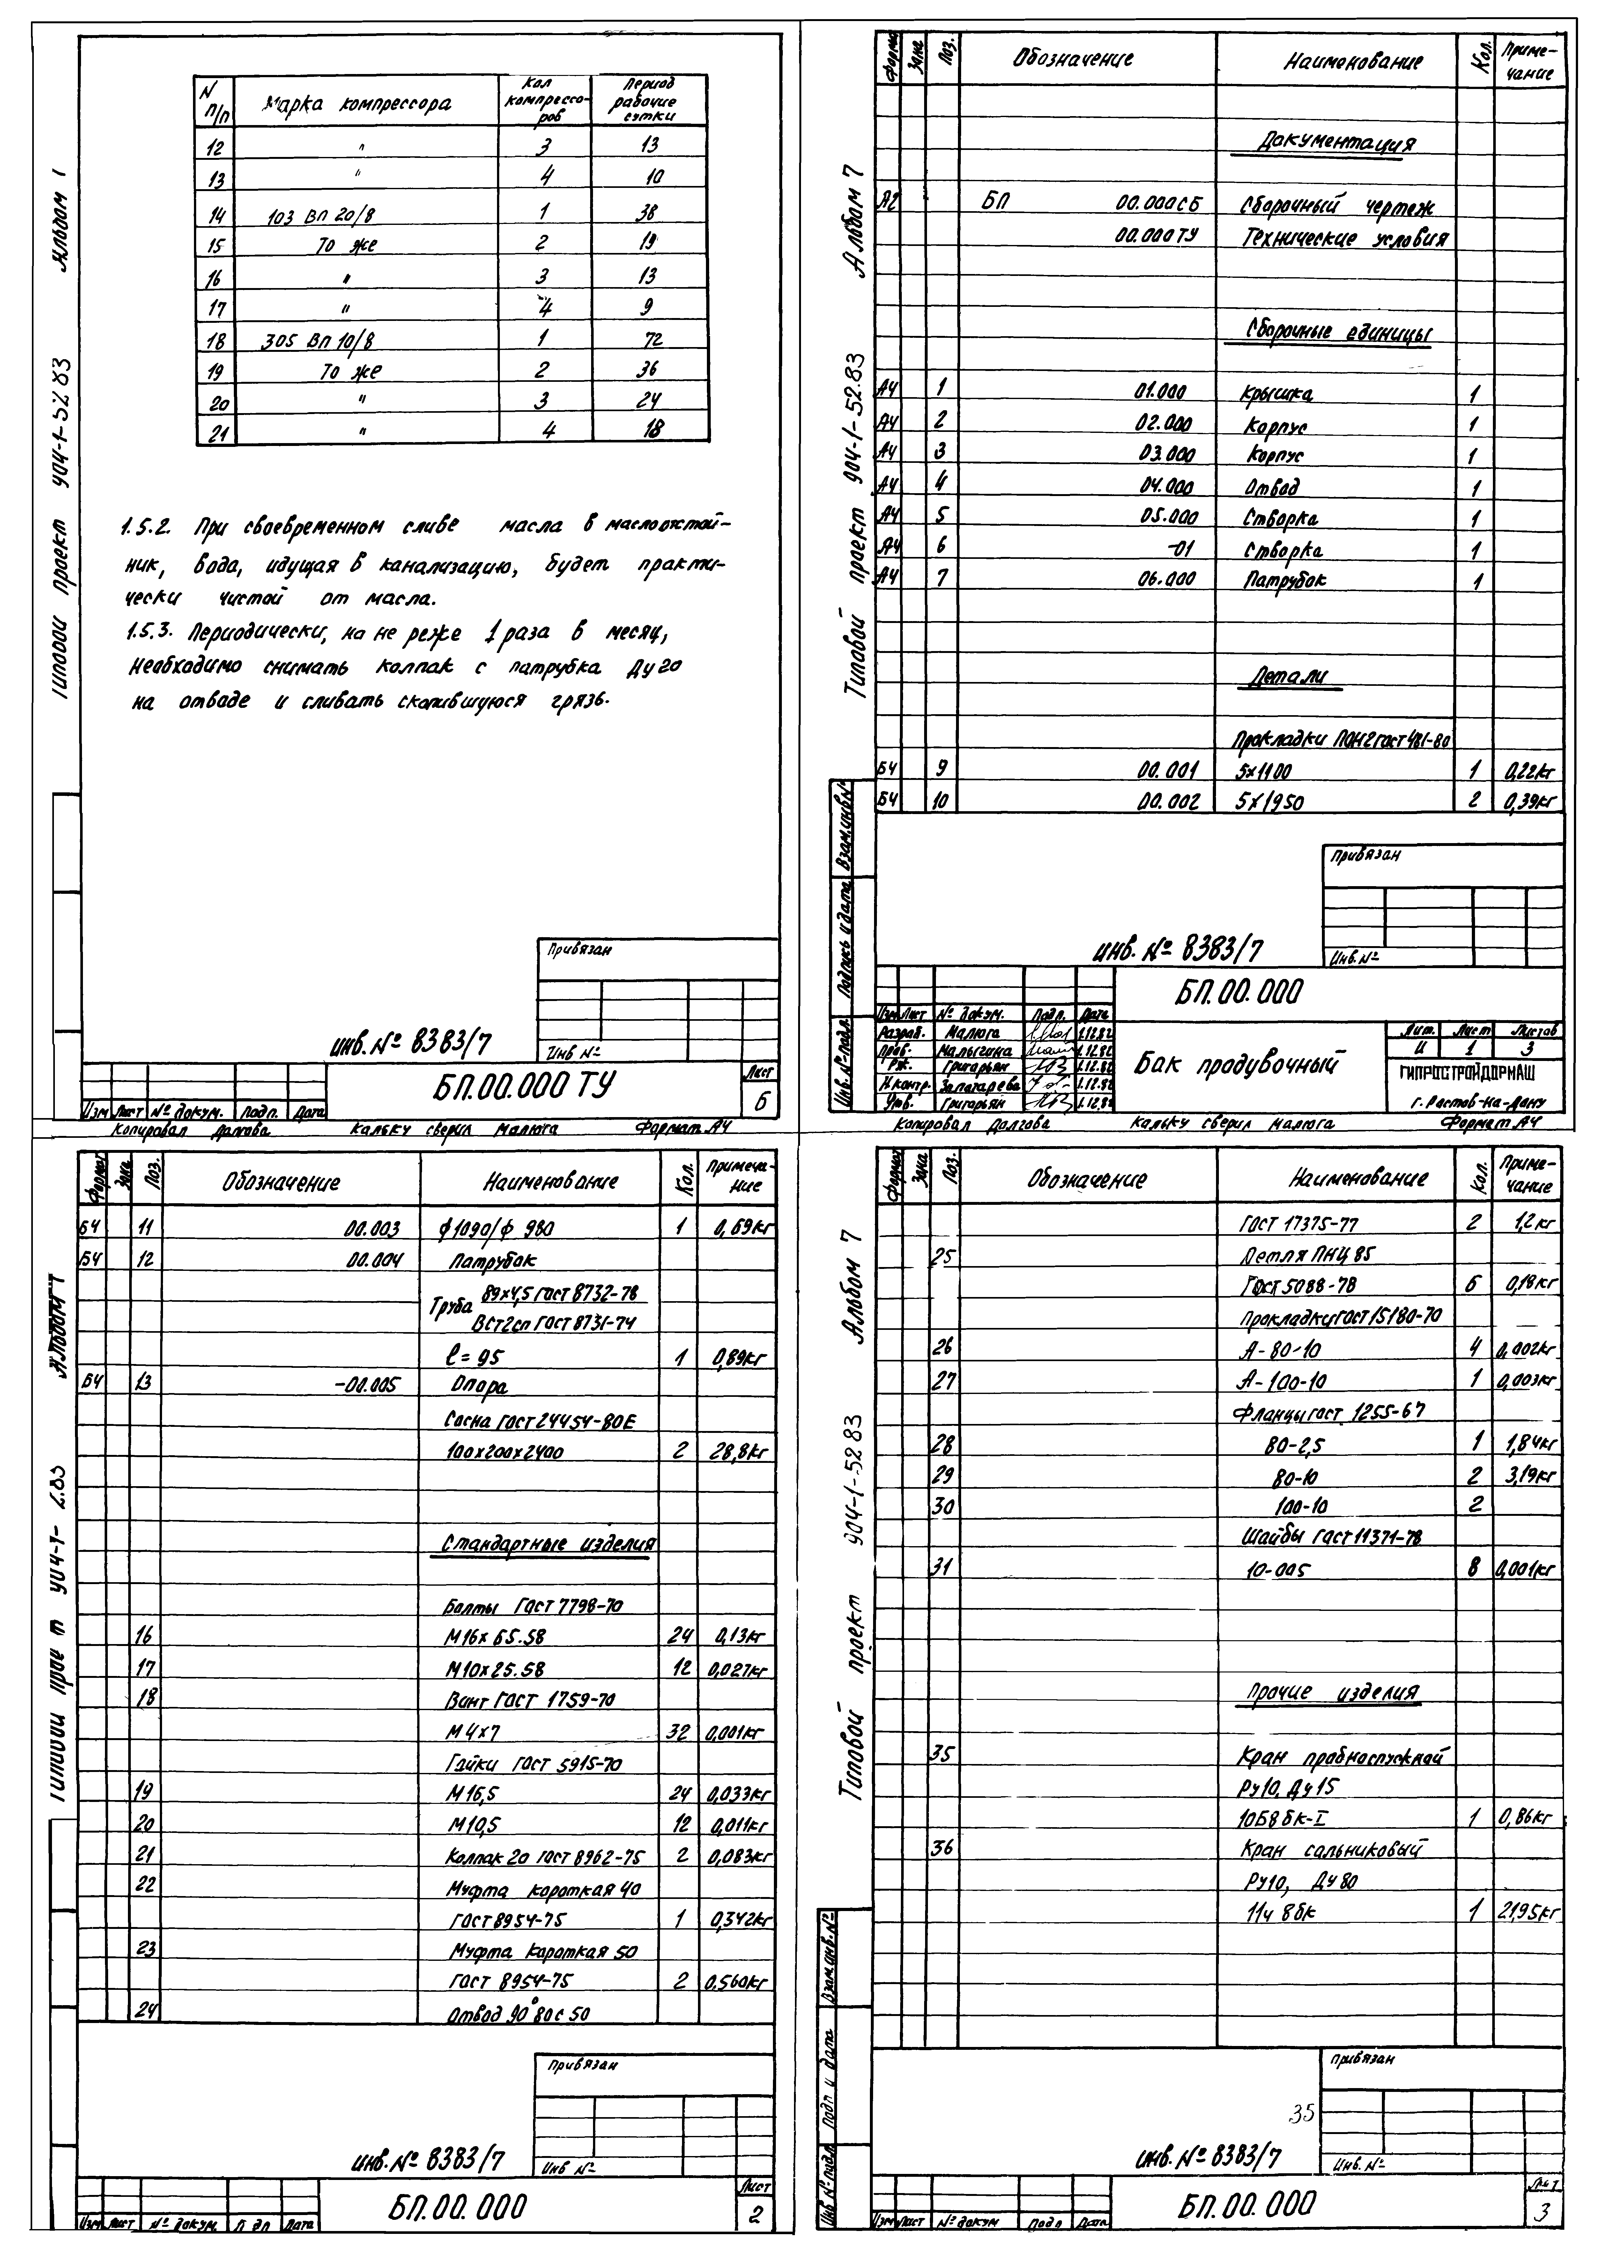 Альбом 1
Типовой проект 904-1-52.83
N п/п | Марка компрессора | Кол компрессоров | Период рабочие сутки
12 | " | 3 | 13
13 | " | 4 | 10
14 | 103 ВП 20/8 | 1 | 38
15 | То же | 2 | 19
16 | " | 3 | 13
17 | " | 4 | 9
18 | 305 ВП 10/8 | 1 | 72
19 | То же | 2 | 36
20 | " | 3 | 24
21 | " | 4 | 18
1.5.2. При своевременном сливе масла в маслоотстой-
ник, вода, идущая в канализацию, будет практи-
чески чистой от масла.
1.5.3. Периодически, но не реже 1 раза в месяц,
необходимо снимать колпак с патрубка Ду20
на отводе и сливать скопившуюся грязь.
Привязан
Инв №
инв. № 8383/7
БП.00.000 ТУ
Лист
6
Изм Лист № докум. Подп. Дата
Копировал Долгова Кальку сверил Малюга Формат А4
Альбом 7
Типовой проект 904-1-52.83
Формат | Зона | Поз. | Обозначение | Наименование | Кол. | Примечание
Документация
А2 БП 00.000СБ Сборочный чертеж
00.000ТУ Технические условия
Сборочные единицы
А4 1 01.000 Крышка 1
А4 2 02.000 Корпус 1
А4 3 03.000 Корпус 1
А4 4 04.000 Отвод 1
А4 5 05.000 Створка 1
А4 6 -01 Створка 1
А4 7 06.000 Патрубок 1
Детали
Прокладки ПОН2 гост 481-80
БЧ 9 00.001 5х1100 1 0,22кг
БЧ 10 00.002 5х1950 2 0,39кг
Взам.инв№
Подпись и дата
Инв.№подл.
Привязан
Инв. №
инв. № 8383/7
БП.00.000
Изм Лист № докум. Подп. Дата
Разраб. Малюга 1.12.82
Пров. Малыгина 1.12.82
Рж. Григорьян 1.12.82
Н.контр. Золотарева 1.12.82
Утв. Григорьян 1.12.82
Бак продувочный
Лит. Лист Листов
И 1 3
ГИПРОСТРОЙДОРМАШ
г. Ростов-на-Дону
Копировал Долгова Кальку сверил Малюга Формат А4
Альбом 7
Формат | Зона | Поз. | Обозначение | Наименование | Кол. | Примечание
БЧ 11 00.003 ф1090/ф 980 1 0,69кг
БЧ 12 00.004 Патрубок
Труба 89х4,5 ГОСТ 8732-78
ВСт2сп ГОСТ 8731-74
ℓ=95 1 0,89кг
БЧ 13 -00.005 Опора
Сосна гост 24454-80Е
100х200х2400 2 28,8кг
Стандартные изделия
Болты Гост 7798-70
16 М16х65.58 24 0,13кг
17 М10х25.58 12 0,027кг
18 Винт ГОСТ 1759-70
М4х7 32 0,001кг
Гайки ГОСТ 5915-70
19 М16,5 24 0,033кг
20 М10,5 12 0,011кг
21 Колпак 20 ГОСТ 8962-75 2 0,083кг
22 Муфта короткая 40
ГОСТ 8954-75 1 0,342кг
23 Муфта короткая 50
ГОСТ 8954-75 2 0,560кг
24 Отвод 90° 80с 50
Привязан
Инв №
инв. № 8383/7
БП.00.000
Лист
2
Изм Лист № докум. Подп Дата
Альбом 7
Типовой проект 904-1-52.83
Формат | Зона | Поз. | Обозначение | Наименование | Кол. | Примечание
ГОСТ 17375-77 2 1,2кг
25 Петля ПНЦ 85
ГОСТ 5088-78 6 0,18кг
Прокладки ГОСТ 15180-70
26 А-80-10 4 0,002кг
27 А-100-10 1 0,003кг
Фланцы гост 1255-67
28 80-2,5 1 1,84кг
29 80-10 2 3,19кг
30 100-10 2
Шайбы Гост 11371-78
31 10-005 8 0,001кг
Прочие изделия
35 Кран пробноспускной
Ру10, Ду15
10Б8бк-I 1 0,86кг
36 Кран сальниковый
Ру10, Ду80
11ч 8бк 1 21,95кг
Взам.инв.№
Подп и дата
Инв № подл
Привязан
35
Инв. №
инв. № 8383/7
БП.00.000
Лист
3
Изм Лист № докум Подп Дата